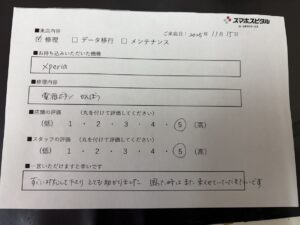 スマホスピタル
■来店内容
ご来店日: 2025年 11月 15日
☑ 修理 □ データ移行 □ メンテナンス
■お持ち込みいただいた機種
Xperia
■修理内容
電源ボタン せんぼう
■店舗の評価 (丸を付けて評価してください)
(低) 1 ・ 2 ・ 3 ・ 4 ・ 5 (高)
■スタッフの評価 (丸を付けて評価してください)
(低) 1 ・ 2 ・ 3 ・ 4 ・ 5 (高)
■一言いただけますと幸いです
すぐに対応して下さり とても助かりました。 困った時は また 来させていただきたいです